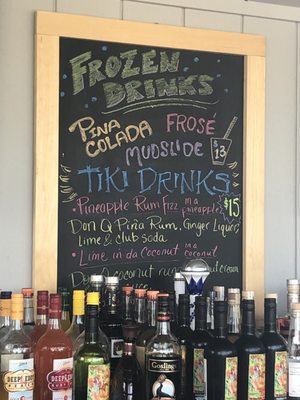 Frozen
Drinks
Piña
Colada
Frosé
Mudslide
$13
Tiki Drinks
• Pineapple Rum Fizz in a pineapple $15
Don Q Piña Rum, Ginger Liquer,
Lime & club soda
• Lime in da Coconut in a coconut
Don Q coconut rum cream
Goslings